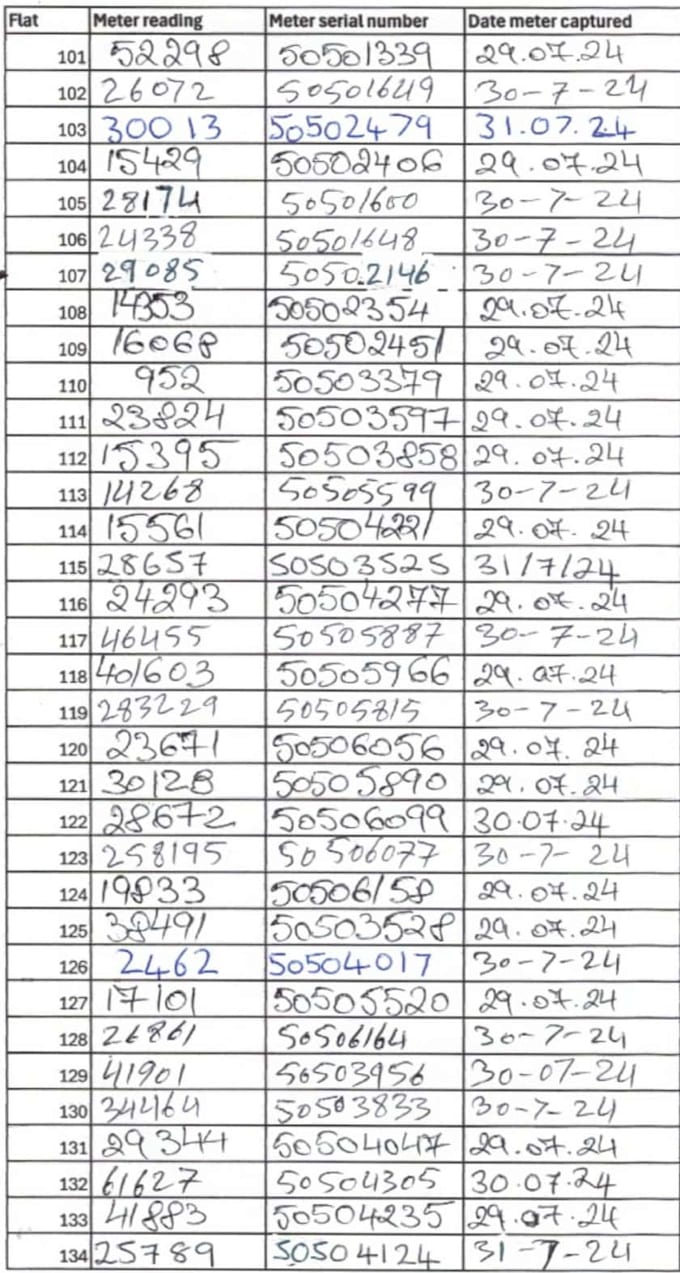 Flat Meter reading Meter serial number Date meter captured
101 52298 50501339 29.07.24
102 26072 50501649 30-7-24
103 30013 50502479 31.07.24
104 15429 50502406 29.07.24
105 28174 50501600 30-7-24
106 24338 50501648 30-7-24
107 29085 50502146 30-7-24
108 14353 50502354 29.07.24
109 16068 50502451 29.07.24
110 952 50503379 29.07.24
111 23824 50503597 29.07.24
112 15395 50503858 29.07.24
113 14268 50505599 30-7-24
114 15561 50504221 29.07.24
115 28657 50503525 31/7/24
116 24293 50504277 29.07.24
117 46455 50505887 30-7-24
118 401603 50505966 29.07.24
119 283229 50505815 30-7-24
120 23671 50506056 29.07.24
121 30128 50505890 29.07.24
122 28672 50506099 30.07.24
123 258195 50506077 30-7-24
124 19833 50506158 29.07.24
125 38491 50503528 29.07.24
126 2462 50504017 30-7-24
127 17101 50505520 29.07.24
128 26861 50506164 30-7-24
129 41901 50503956 30-07-24
130 34464 50503833 30-7-24
131 29344 50504047 29.07.24
132 61627 50504305 30.07.24
133 41883 50504235 29.07.24
134 25789 50504124 31-7-24